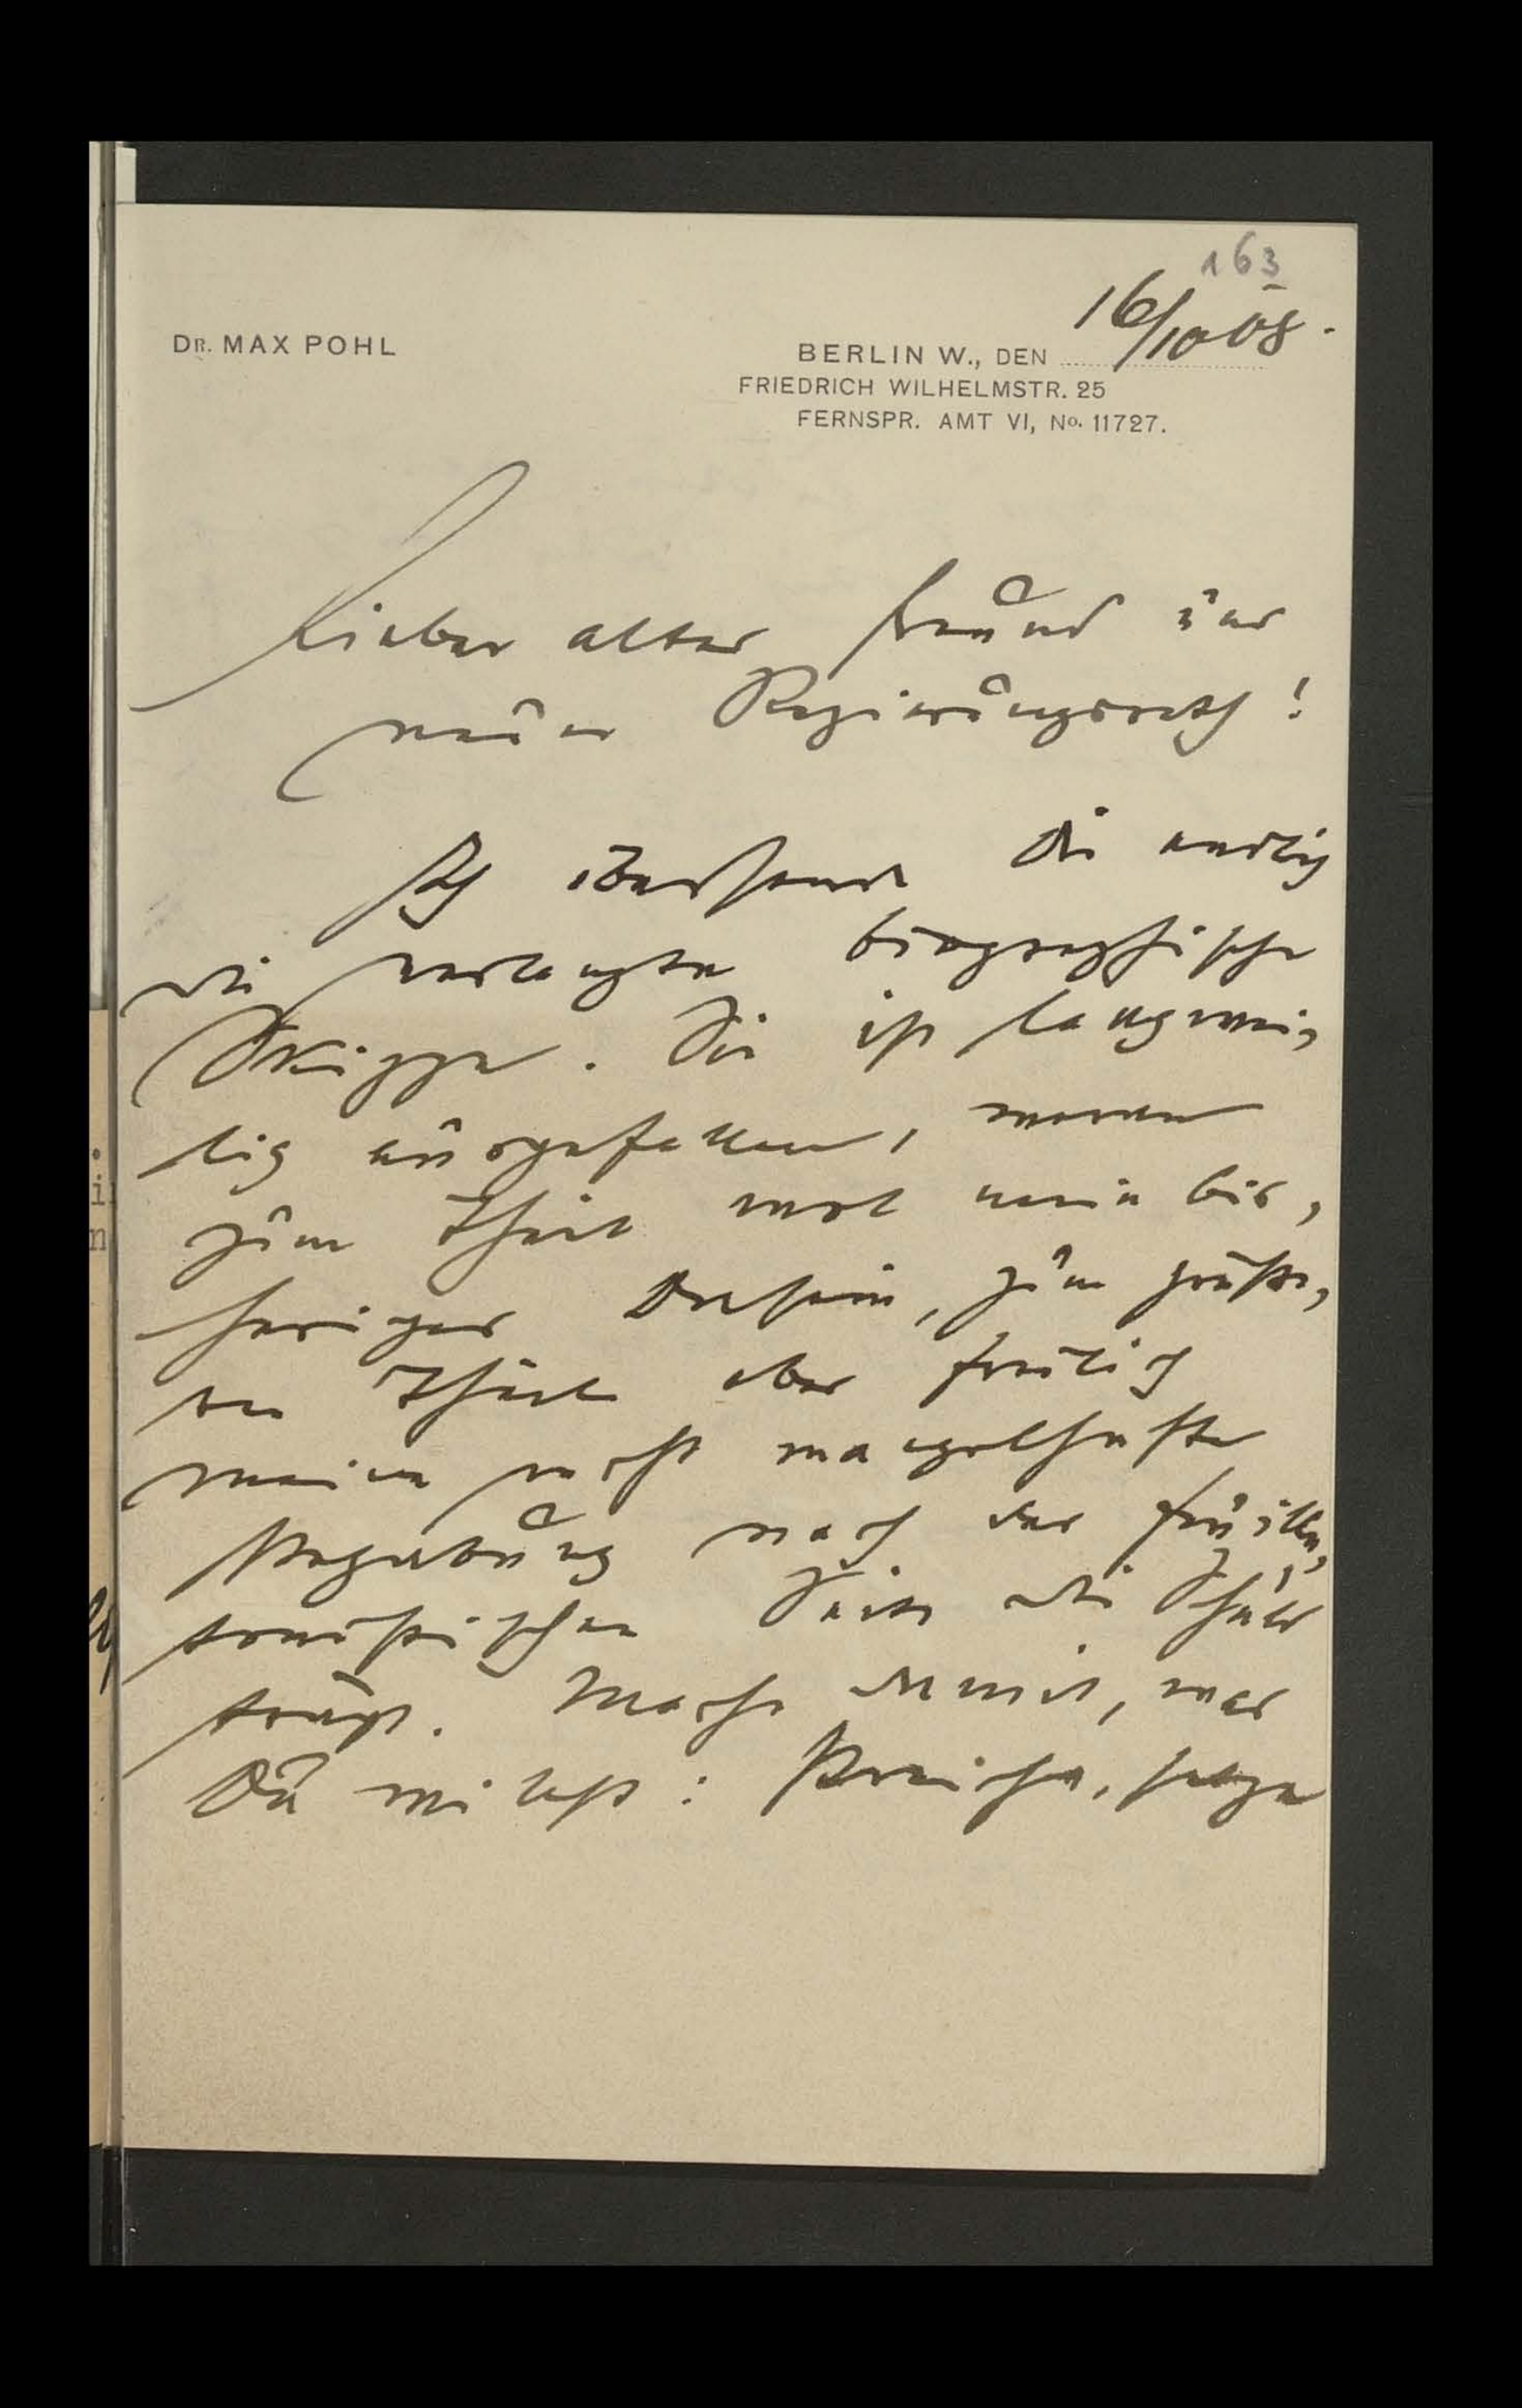 163
16/10 08.
DR. MAX POHL
BERLIN W., DEN
FRIEDRICH WILHELMSTR. 25
FERNSPR. AMT VI, No. 11727.
Lieber alter Freund und
neuer Regierungsrath!
Ich übersende Dir endlich
die verlangte biographische
Skizze. Sie ist langwei-
lig ausgefallen, woran
zum Theil wol mein bis-
heriger Dasein, zum größe-
ren Theile aber freilich
meine recht mangelhafte
Begabung nach der feuille-
tonistischen Seite die Schuld
trägt. Mache damit, was
Du willst: Streiche, setze